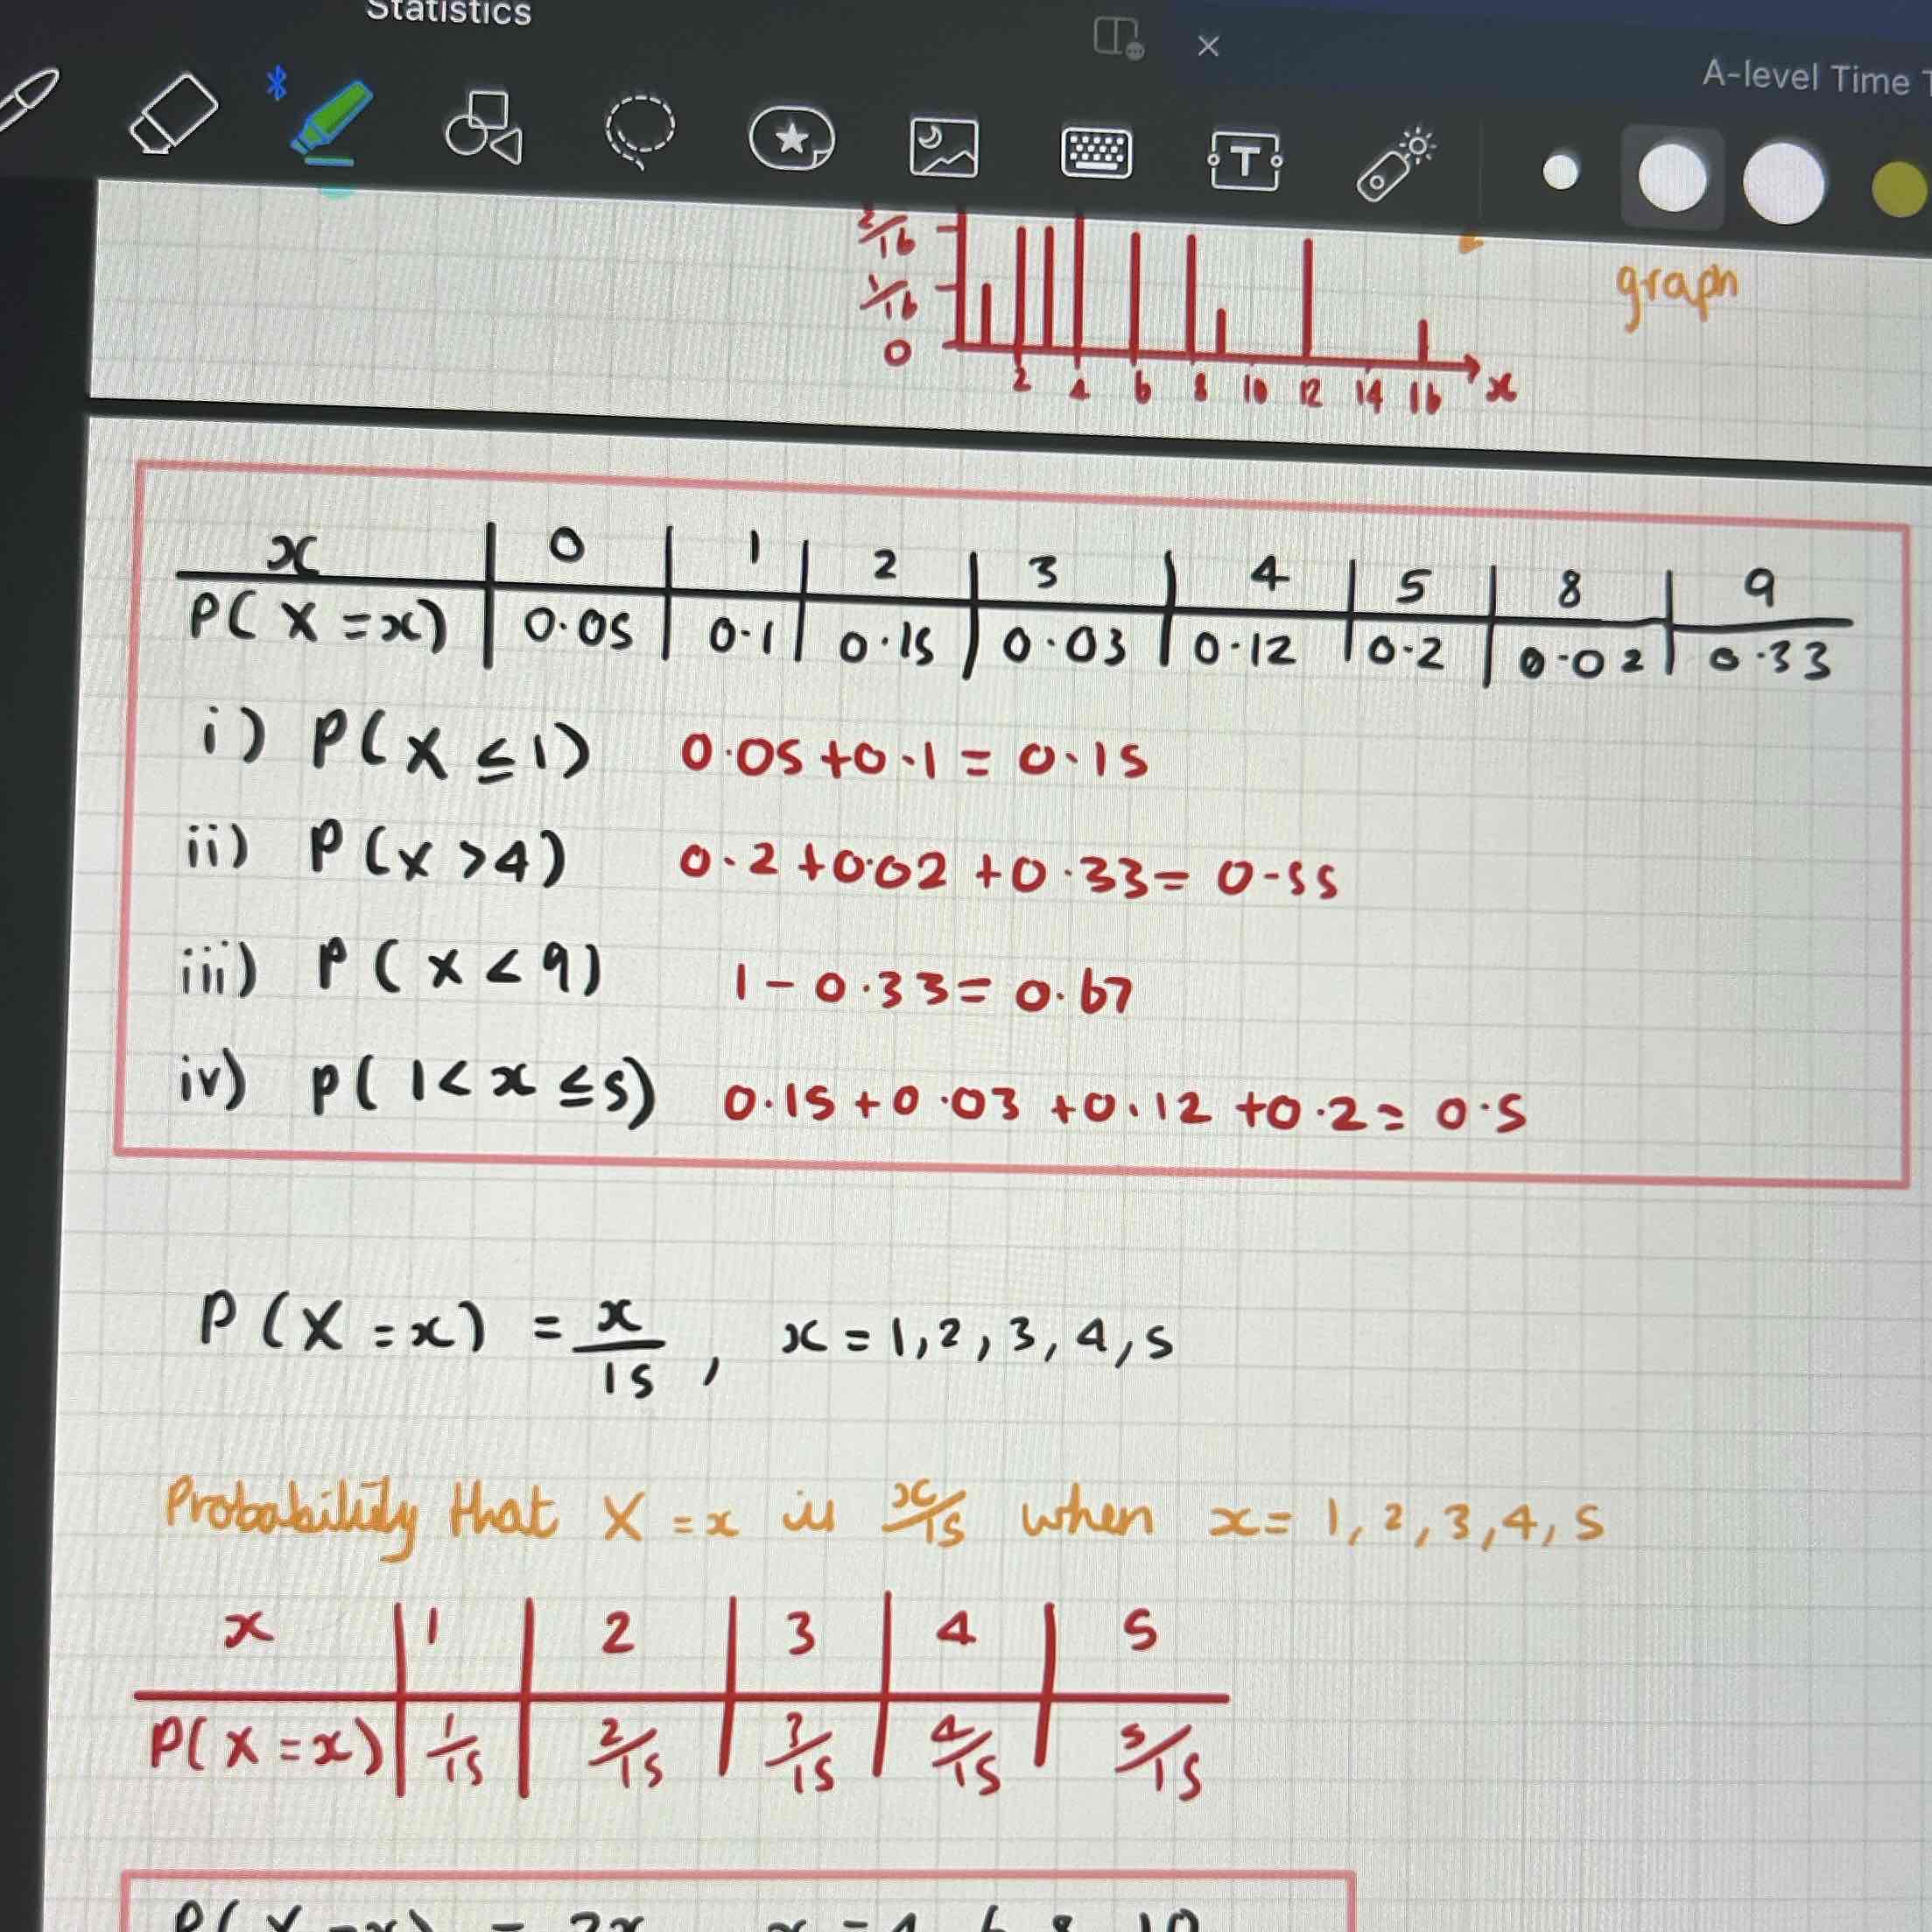 Statistics
A-level Time T
2/16
1/16
0
2 4 6 8 10 12 14 16 x
graph
x | 0 | 1 | 2 | 3 | 4 | 5 | 8 | 9
P(X=x) | 0.05 | 0.1 | 0.15 | 0.03 | 0.12 | 0.2 | 0.02 | 0.33
i) P(X ≤ 1) 0.05 + 0.1 = 0.15
ii) P(X > 4) 0.2 + 0.02 + 0.33 = 0.55
iii) P(X < 9) 1 - 0.33 = 0.67
iv) P(1 < x ≤ 5) 0.15 + 0.03 + 0.12 + 0.2 = 0.5
P(X=x) = x/15, x = 1, 2, 3, 4, 5
Probability that X = x is x/15 when x = 1, 2, 3, 4, 5
x | 1 | 2 | 3 | 4 | 5
P(X=x) | 1/15 | 2/15 | 3/15 | 4/15 | 5/15